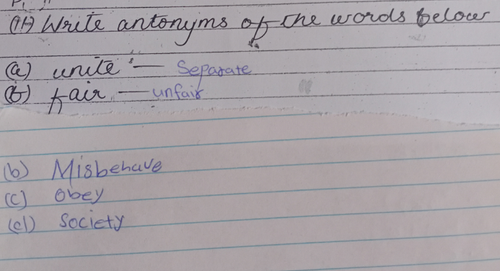 (14) Write antonyms of the words below
(a) unite — Separate
(b) fair — unfair
(b) Misbehave
(c) obey
(d) Society